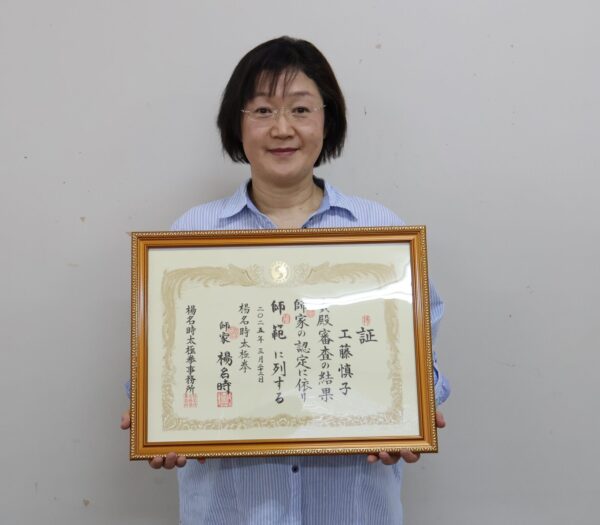 証
工藤慎子
殿審査の結果
師家の認定に依り
師範に列する
二〇二五年三月二十二日
楊名時太極拳
師家 楊名時
楊名時太極拳事務所